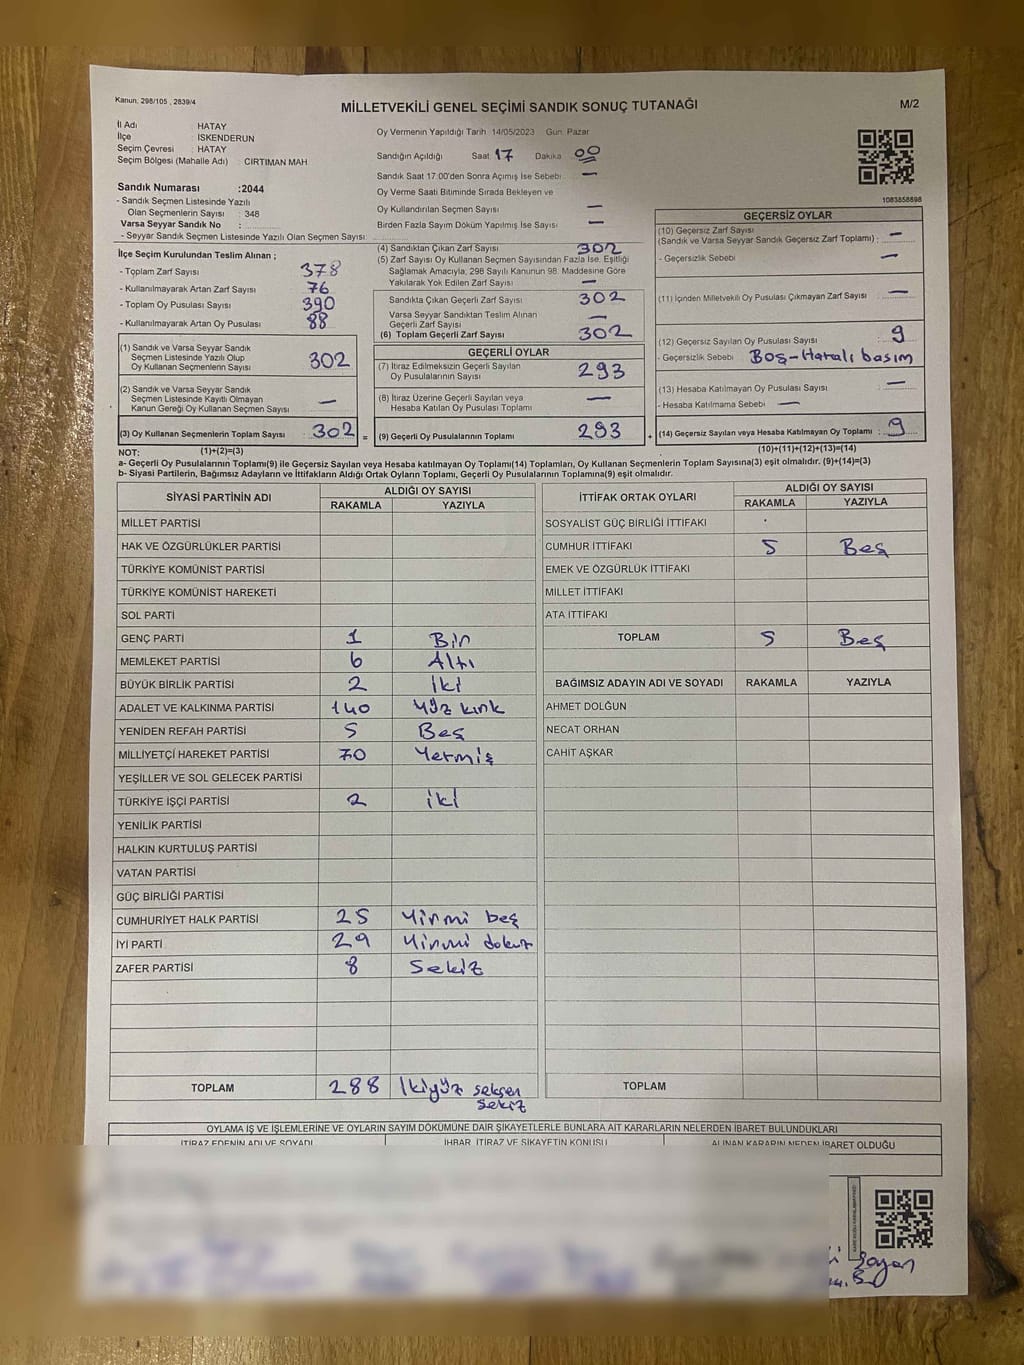 Kanun. 298/105 , 2839/4
MİLLETVEKİLİ GENEL SEÇİMİ SANDIK SONUÇ TUTANAĞI
M/2
İl Adı : HATAY
İlçe : İSKENDERUN
Seçim Çevresi : HATAY
Seçim Bölgesi (Mahalle Adı) : CIRTIMAN MAH
Oy Vermenin Yapıldığı Tarih 14/05/2023 Gün: Pazar
Sandığın Açıldığı Saat 17 Dakika 00
Sandık Saat 17.00'den Sonra Açımış İse Sebebi —
Oy Verme Saati Bitiminde Sırada Bekleyen ve
Oy Kullandırılan Seçmen Sayısı —
Birden Fazla Sayım Döküm Yapılmış İse Sayısı —
1083858898
Sandık Numarası :2044
- Sandık Seçmen Listesinde Yazılı
Olan Seçmenlerin Sayısı : 348
Varsa Seyyar Sandık No :
- Seyyar Sandık Seçmen Listesinde Yazılı Olan Seçmen Sayısı:
İlçe Seçim Kurulundan Teslim Alınan ;
- Toplam Zarf Sayısı 378
- Kullanılmayarak Artan Zarf Sayısı 76
- Toplam Oy Pusulası Sayısı 390
- Kullanılmayarak Artan Oy Pusulası 88
(1) Sandık ve Varsa Seyyar Sandık
Seçmen Listesinde Yazılı Olup
Oy Kullanan Seçmenlerin Sayısı 302
(2) Sandık ve Varsa Seyyar Sandık
Seçmen Listesinde Kayıtlı Olmayan
Kanun Gereği Oy Kullanan Seçmen Sayısı —
(3) Oy Kullanan Seçmenlerin Toplam Sayısı : 302 =
(4) Sandıktan Çıkan Zarf Sayısı 302
(5) Zarf Sayısı Oy Kullanan Seçmen Sayısından Fazla İse, Eşitliği
Sağlamak Amacıyla, 298 Sayılı Kanunun 98. Maddesine Göre
Yakılarak Yok Edilen Zarf Sayısı —
Sandıkta Çıkan Geçerli Zarf Sayısı 302
Varsa Seyyar Sandıktan Teslim Alınan
Geçerli Zarf Sayısı —
(6) Toplam Geçerli Zarf Sayısı 302
GEÇERLİ OYLAR
(7) İtiraz Edilmeksizin Geçerli Sayılan
Oy Pusulalarının Sayısı 293
(8) İtiraz Üzerine Geçerli Sayılan veya
Hesaba Katılan Oy Pusulası Toplamı —
(9) Geçerli Oy Pusulalarının Toplamı 293 +
GEÇERSİZ OYLAR
(10) Geçersiz Zarf Sayısı
(Sandık ve Varsa Seyyar Sandık Geçersiz Zarf Toplamı) : —
- Geçersizlik Sebebi —
(11) İçinden Milletvekili Oy Pusulası Çıkmayan Zarf Sayısı —
(12) Geçersiz Sayılan Oy Pusulası Sayısı 9
- Geçersizlik Sebebi Boş-Hatalı basım
(13) Hesaba Katılmayan Oy Pusulası Sayısı —
- Hesaba Katılmama Sebebi —
(14) Geçersiz Sayılan veya Hesaba Katılmayan Oy Toplamı : 9
NOT: (1)+(2)=(3)
(10)+(11)+(12)+(13)=(14)
a- Geçerli Oy Pusulalarının Toplamı(9) ile Geçersiz Sayılan veya Hesaba katılmayan Oy Toplamı(14) Toplamları, Oy Kullanan Seçmenlerin Toplam Sayısına(3) eşit olmalıdır. (9)+(14)=(3)
b- Siyasi Partilerin, Bağımsız Adayların ve İttifakların Aldığı Ortak Oyların Toplamı, Geçerli Oy Pusulalarının Toplamına(9) eşit olmalıdır.
SİYASİ PARTİNİN ADI ALDIĞI OY SAYISI
RAKAMLA YAZIYLA
MİLLET PARTİSİ
HAK VE ÖZGÜRLÜKLER PARTİSİ
TÜRKİYE KOMÜNİST PARTİSİ
TÜRKİYE KOMÜNİST HAREKETİ
SOL PARTİ
GENÇ PARTİ 1 Bir
MEMLEKET PARTİSİ 6 Altı
BÜYÜK BİRLİK PARTİSİ 2 iki
ADALET VE KALKINMA PARTİSİ 140 Yüz kırk
YENİDEN REFAH PARTİSİ 5 Beş
MİLLİYETÇİ HAREKET PARTİSİ 70 Yetmiş
YEŞİLLER VE SOL GELECEK PARTİSİ
TÜRKİYE İŞÇİ PARTİSİ 2 iki
YENİLİK PARTİSİ
HALKIN KURTULUŞ PARTİSİ
VATAN PARTİSİ
GÜÇ BİRLİĞİ PARTİSİ
CUMHURİYET HALK PARTİSİ 25 Yirmi beş
İYİ PARTİ 29 Yirmi dokuz
ZAFER PARTİSİ 8 Sekiz
TOPLAM 288 İkiyüz seksen
sekiz
İTTİFAK ORTAK OYLARI ALDIĞI OY SAYISI
RAKAMLA YAZIYLA
SOSYALİST GÜÇ BİRLİĞİ İTTİFAKI
CUMHUR İTTİFAKI 5 Beş
EMEK VE ÖZGÜRLÜK İTTİFAKI
MİLLET İTTİFAKI
ATA İTTİFAKI
TOPLAM 5 Beş
BAĞIMSIZ ADAYIN ADI VE SOYADI RAKAMLA YAZIYLA
AHMET DOLĞUN
NECAT ORHAN
CAHİT AŞKAR
TOPLAM
OYLAMA İŞ VE İŞLEMLERİNE VE OYLARIN SAYIM DÖKÜMÜNE DAİR ŞİKAYETLERLE BUNLARA AİT KARARLARIN NELERDEN İBARET BULUNDUKLARI
İTİRAZ EDENİN ADI VE SOYADI İHBAR, İTİRAZ VE ŞİKAYETİN KONUSU ALINAN KARARIN NEDEN İBARET OLDUĞU